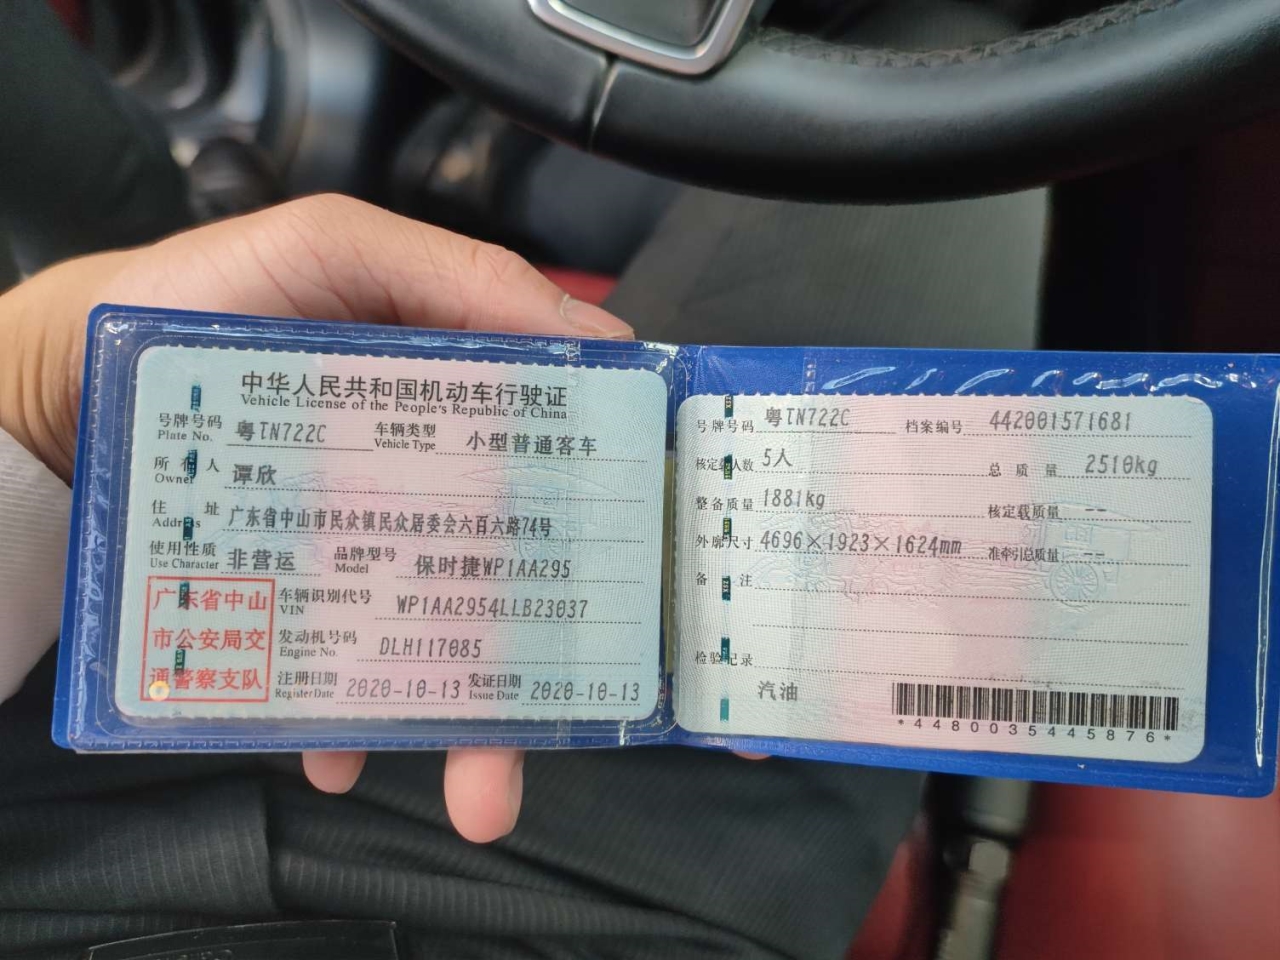 中华人民共和国机动车行驶证
Vehicle License of the People's Republic of China
号牌号码 粤TN722C 车辆类型 小型普通客车
Plate No. Vehicle Type
所有人 谭欣
Owner
住址 广东省中山市民众镇民众居委会六百六路74号
Address
使用性质 非营运 品牌型号 保时捷WP1AA295
Use Character Model
广东省中山
市公安局交
通警察支队
车辆识别代号 WP1AA2954LLB23037
VIN
发动机号码 DLH117085
Engine No.
注册日期 2020-10-13 发证日期 2020-10-13
Register Date Issue Date
号牌号码 粤TN722C 档案编号 442001571681
核定载人数 5人 总质量 2510kg
整备质量 1881kg 核定载质量 --
外廓尺寸 4696×1923×1624mm 准牵引总质量 --
备注
检验记录
汽油
*4480035445876*